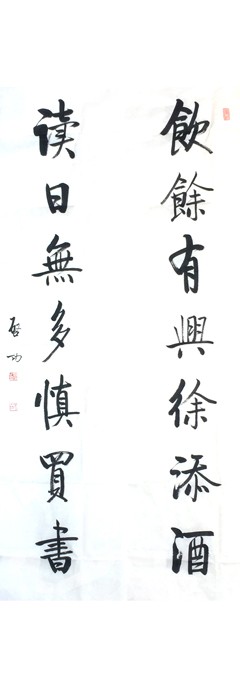 飲餘有興徐添酒
读日無多慎買書
啓功